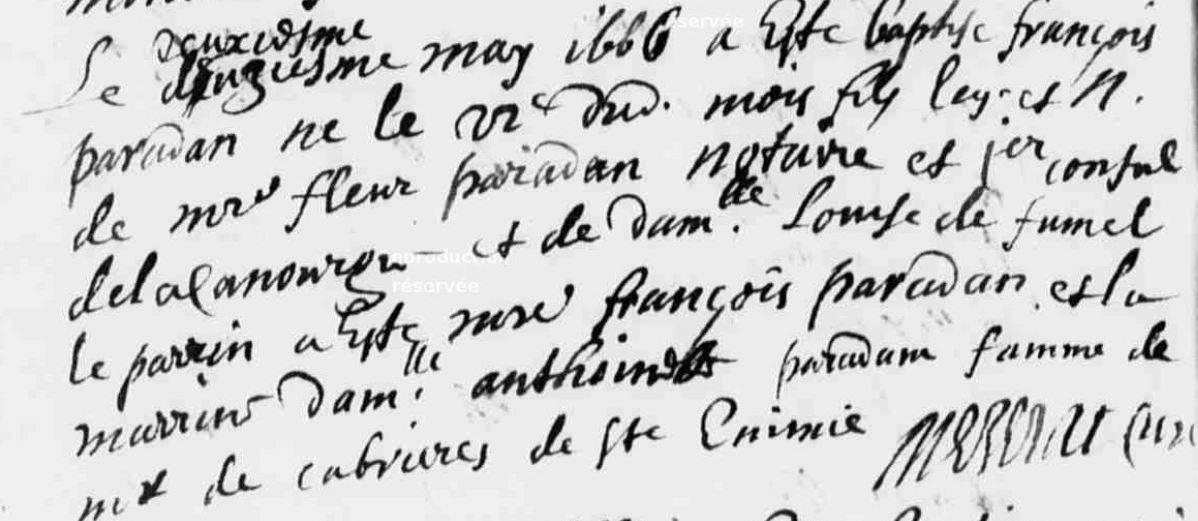 deuxiesme
Le may 1666 a Este baptise françois
paradan ne le VIe dud. mois fils leg. et N.
de mre fleur paradan notaire et jer consul
de la Canourgue et de damlle. Louyse de fumel
le parrin a Este mre françois paradan et la
marrine damlle. anthoinette paradane famme de
mr de cabrieres de Ste Enimie